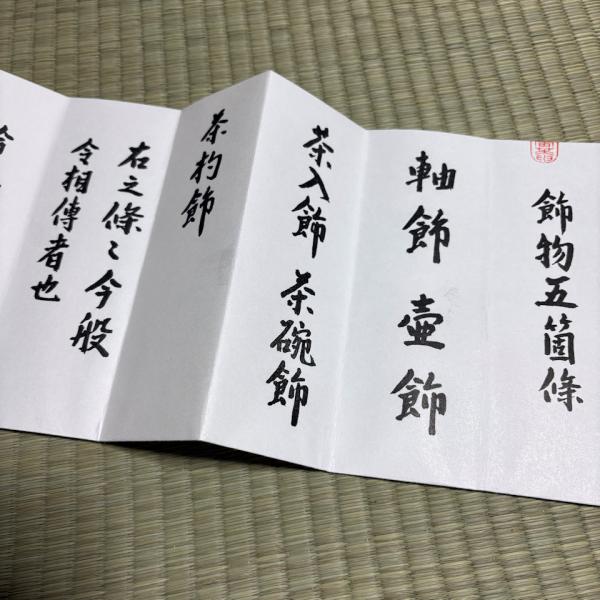 飾物五箇條
軸飾 壺飾
茶入飾 茶碗飾
茶杓飾
右之條々今般
令相傳者也